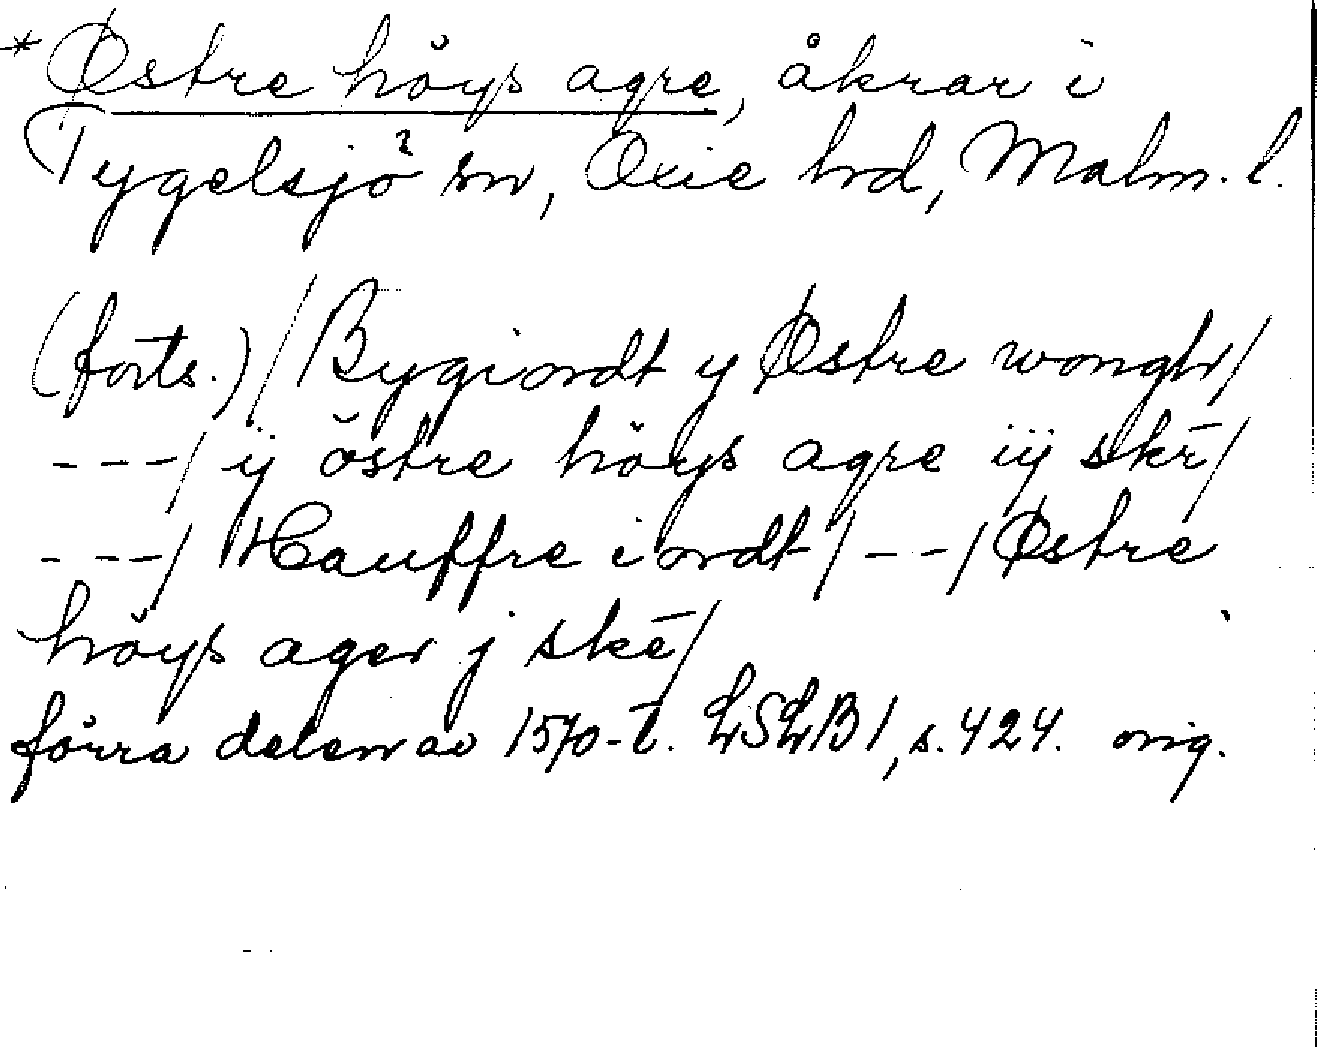 *Østre höys agre, åkrar i
Tygelsjö sn, Oxie hd, Malm. l.
(forts.) / Bygiordt y Østre wongh/
---/ ij östre höys agre iij skē/
---/ Hauffre iordt /--/ Østre
höys ager j skē/
förra delen av 1570-t. LSLB1, s.424. orig.